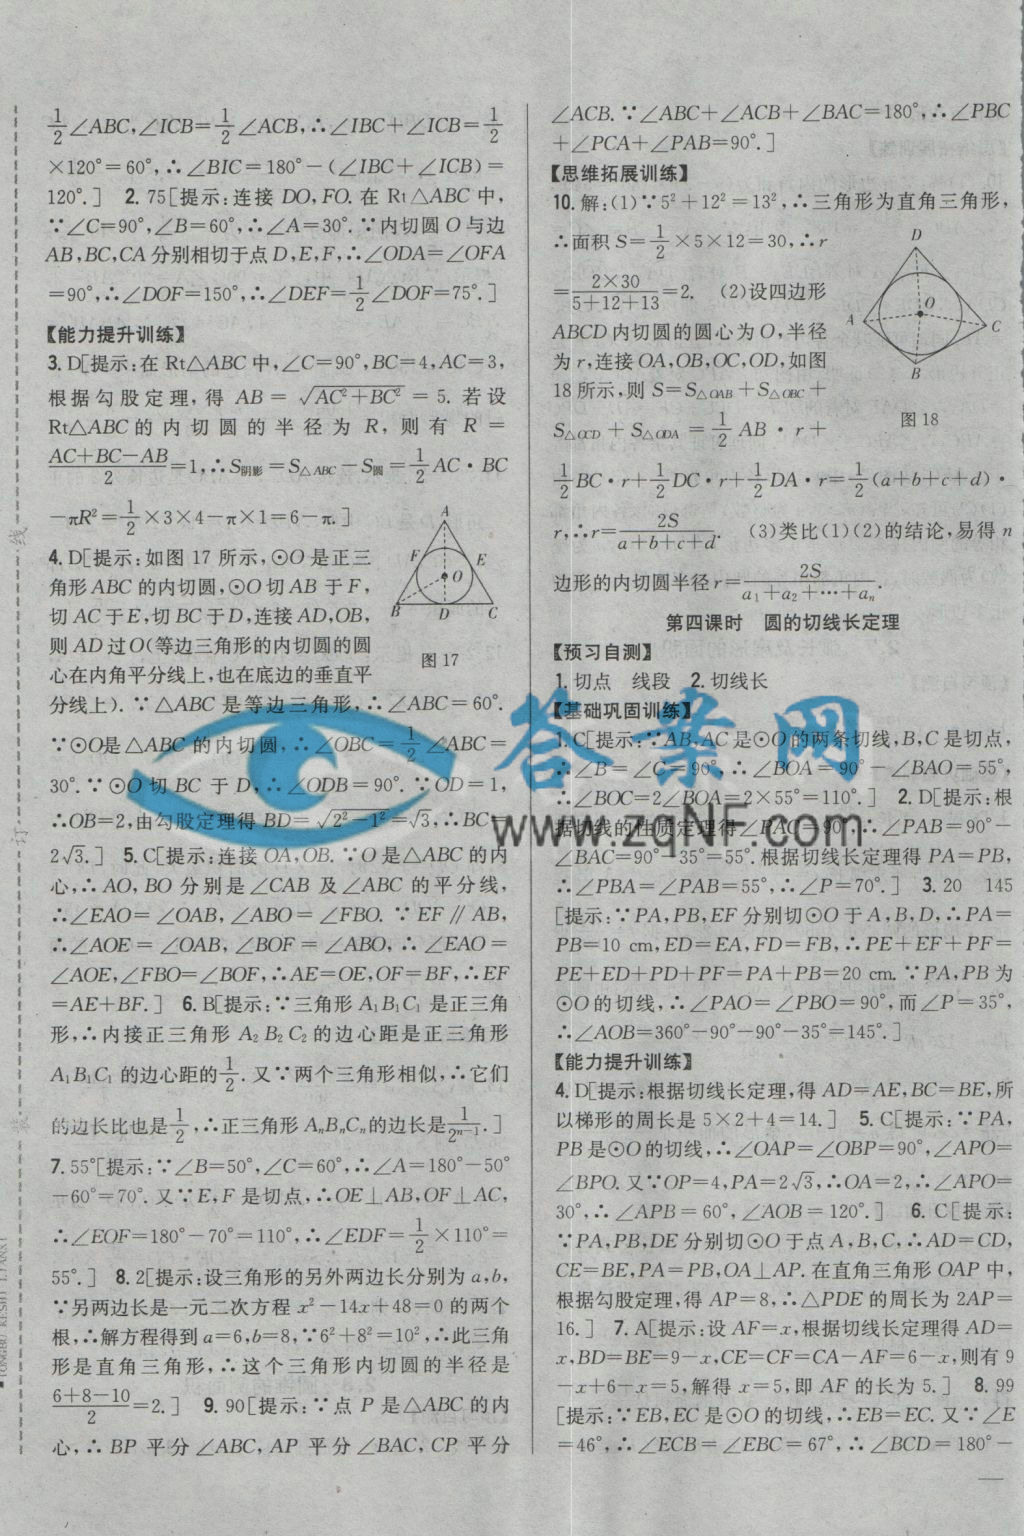 1/2∠ABC,∠ICB=1/2∠ACB,∴∠IBC+∠ICB=1/2
×120°=60°,∴∠BIC=180°-(∠IBC+∠ICB)=
120°.] 2. 75[提示:连接 DO,FO. 在 Rt△ABC 中,
∵∠C=90°,∠B=60°,∴∠A=30°. ∵内切圆 O 与边
AB,BC,CA 分别相切于点 D,E,F,∴∠ODA=∠OFA
=90°,∴∠DOF=150°,∴∠DEF=1/2∠DOF=75°.]
【能力提升训练】
3. D[提示:在 Rt△ABC 中,∠C=90°,BC=4,AC=3,
根据勾股定理,得 AB=√(AC²+BC²)=5. 若设
Rt△ABC 的内切圆的半径为 R,则有 R=
(AC+BC-AB)/2=1,∴S阴影=S△ABC-S圆=1/2AC·BC
-πR²=1/2×3×4-π×1=6-π.]
4. D[提示:如图 17 所示,⊙O 是正三
角形 ABC 的内切圆,⊙O 切 AB 于 F,
切 AC 于 E,切 BC 于 D,连接 AD,OB,
则 AD 过 O(等边三角形的内切圆的圆
心在内角平分线上,也在底边的垂直平
分线上). ∵△ABC 是等边三角形,∴∠ABC=60°.
∵⊙O是△ABC 的内切圆,∴∠OBC=1/2∠ABC=
30°. ∵⊙O 切 BC 于 D,∴∠ODB=90°. ∵OD=1,
∴OB=2,由勾股定理得 BD=√(2²-1²)=√3,∴BC=
2√3.] 5. C[提示:连接 OA,OB. ∵O 是△ABC 的内
心,∴AO,BO 分别是∠CAB 及∠ABC 的平分线,
∴∠EAO=∠OAB,∠ABO=∠FBO. ∵EF∥AB,
∴∠AOE=∠OAB,∠BOF=∠ABO,∴∠EAO=
∠AOE,∠FBO=∠BOF,∴AE=OE,OF=BF,∴EF
=AE+BF.] 6. B[提示:∵三角形 A₁B₁C₁ 是正三角
形,∴内接正三角形 A₂B₂C₂的边心距是正三角形
A₁B₁C₁ 的边心距的1/2. 又∵两个三角形相似,∴它们
的边长比也是1/2,∴正三角形 AₙBₙCₙ的边长是1/2ⁿ⁻¹.]
7. 55°[提示:∵∠B=50°,∠C=60°,∴∠A=180°-50°
-60°=70°. 又∵E,F 是切点,∴OE⊥AB,OF⊥AC,
∴∠EOF=180°-70°=110°,∴∠EDF=1/2×110°=
55°.] 8. 2[提示:设三角形的另外两边长分别为 a,b,
∵另两边长是一元二次方程 x²-14x+48=0 的两个
根,∴解方程得到 a=6,b=8,∵6²+8²=10²,∴此三角
形是直角三角形,∴这个三角形内切圆的半径是
(6+8-10)/2=2.] 9. 90[提示:∵点 P 是△ABC 的内
心,∴BP 平分∠ABC,AP 平分∠BAC,CP 平分
A
F E
O
B D C
图 17
∠ACB. ∵∠ABC+∠ACB+∠BAC=180°,∴∠PBC
+∠PCA+∠PAB=90°.]
【思维拓展训练】
10. 解:(1)∵5²+12²=13²,∴三角形为直角三角形,
∴面积 S=1/2×5×12=30,∴r
=(2×30)/(5+12+13)=2. (2)设四边形
ABCD 内切圆的圆心为 O,半径
为 r,连接 OA,OB,OC,OD,如图
18 所示,则 S=S△OAB+S△OBC+
S△OCD+S△ODA=1/2AB·r+
1/2BC·r+1/2DC·r+1/2DA·r=1/2(a+b+c+d)·
r,∴r=2S/(a+b+c+d). (3)类比(1)(2)的结论,易得 n
边形的内切圆半径 r=2S/(a₁+a₂+…+aₙ).
D
O
A C
B
图 18
第四课时 圆的切线长定理
【预习自测】
1. 切点 线段 2. 切线长
【基础巩固训练】
1. C[提示:∵AB,AC 是⊙O 的两条切线,B,C 是切点,
∴∠B=∠C=90°,∴∠BOA=90°-∠BAO=55°,
∴∠BOC=2∠BOA=2×55°=110°.] 2. D[提示:根
据切线的性质定理得∠PAC=90°,∴∠PAB=90°-
∠BAC=90°-35°=55°. 根据切线长定理得 PA=PB,
∴∠PBA=∠PAB=55°,∴∠P=70°.] 3. 20 145
[提示:∵PA,PB,EF 分别切⊙O 于 A,B,D,∴PA=
PB=10 cm,ED=EA,FD=FB,∴PE+EF+PF=
PE+ED+PD+PF=PA+PB=20 cm. ∵PA,PB 为
⊙O 的切线,∴∠PAO=∠PBO=90°,而∠P=35°,
∴∠AOB=360°-90°-90°-35°=145°.]
【能力提升训练】
4. D[提示:根据切线长定理,得 AD=AE,BC=BE,所
以梯形的周长是 5×2+4=14.] 5. C[提示:∵PA,
PB 是⊙O 的切线,∴∠OAP=∠OBP=90°,∠APO=
∠BPO. 又∵OP=4,PA=2√3,∴OA=2,∴∠APO=
30°,∴∠APB=60°,∠AOB=120°.] 6. C[提示:
∵PA,PB,DE 分别切⊙O 于点 A,B,C,∴AD=CD,
CE=BE,PA=PB,OA⊥AP. 在直角三角形 OAP 中,
根据勾股定理,得 AP=8,∴△PDE 的周长为 2AP=
16.] 7. A[提示:设 AF=x,根据切线长定理得 AD=
x,BD=BE=9-x,CE=CF=CA-AF=6-x,则有 9
-x+6-x=5,解得 x=5,即 AF 的长为 5.] 8. 99
[提示:∵EB,EC 是⊙O 的切线,∴EB=EC. 又∵∠E
=46°,∴∠ECB=∠EBC=67°,∴∠BCD=180°-
线
订
装
答案网
www.zqNF.com